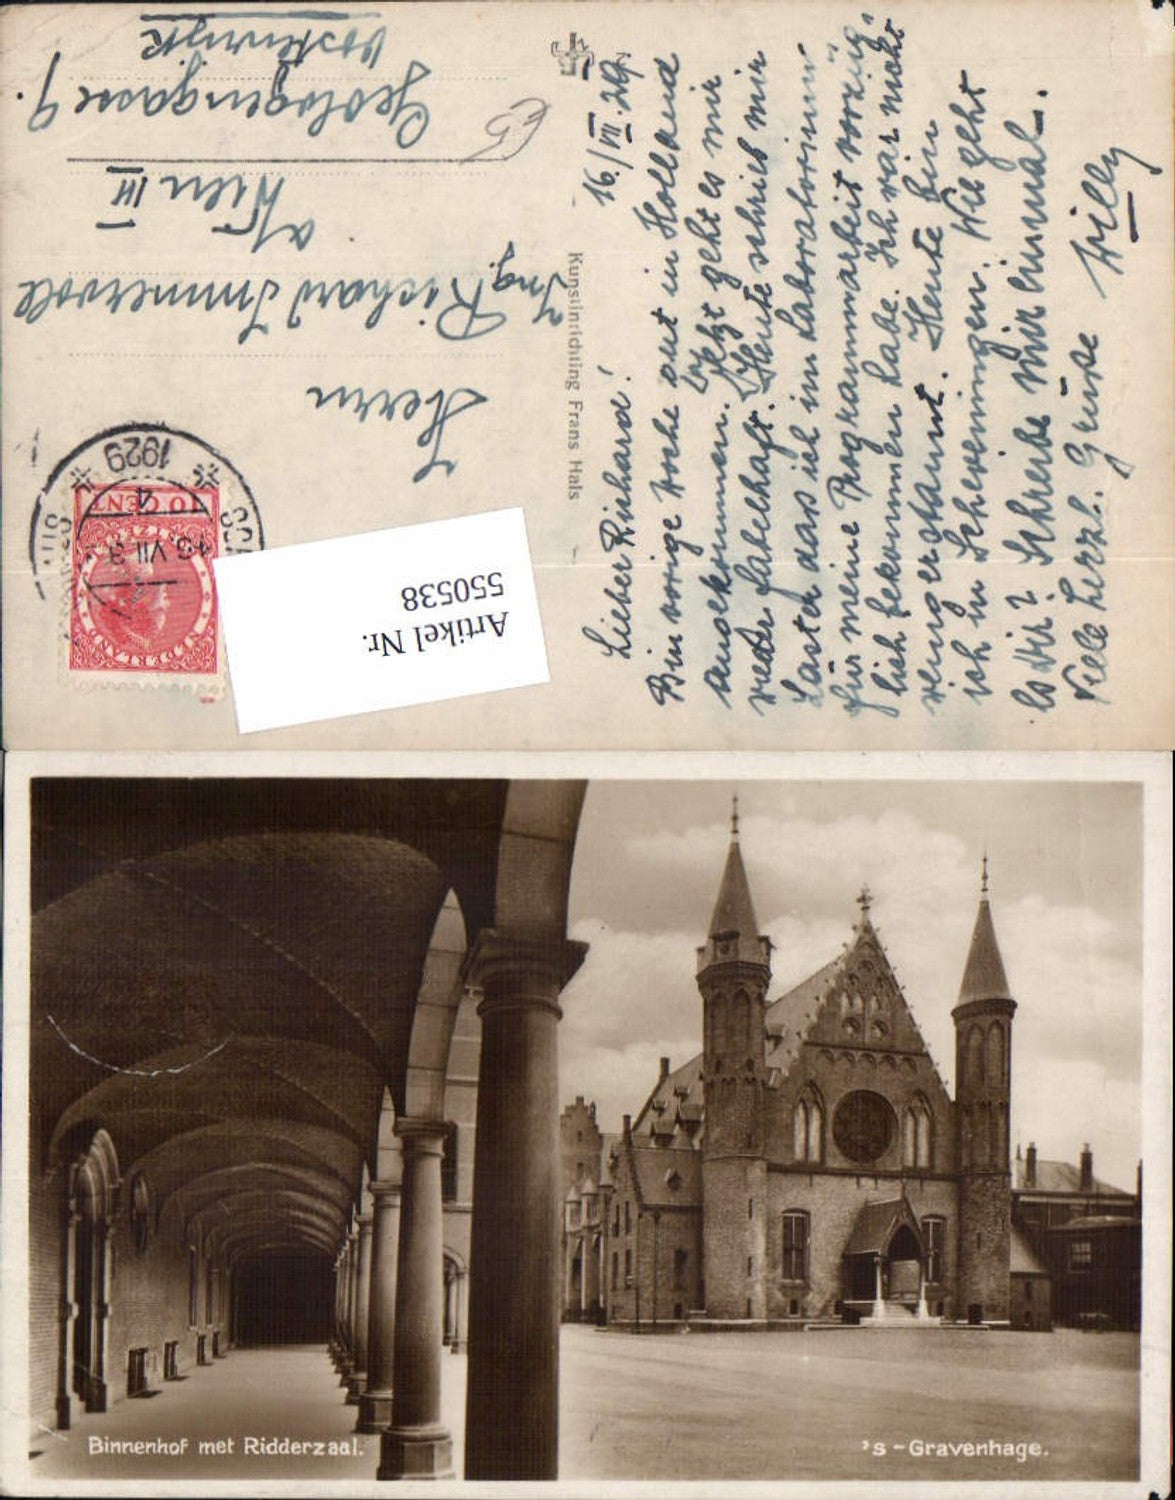 16./VII. 29.
Lieber Richard!
Bin vorige Woche gut in Holland
angekommen. Jetzt geht es mir
wieder fabelhaft. Heute schrieb mir
das ich im Laboratorium
für meine Programmarbeit vorzüg-
lich bekommen habe. Ich war nicht
wenig erstaunt. Heute bin
ich in Scheveningen. Wie geht
es Dir? Schreibe mir einmal.
Viele herzl. Grüße
Willy
Kunstinrichting Frans Hals
Herrn
Ing. Richard Immervoll
Wien III
Geologengasse 9.
Oostenrijk
€5
10 CENT
NEDERLAND
VII
4
1929
Artikel Nr.
550538
Binnenhof met Ridderzaal.
's-Gravenhage.